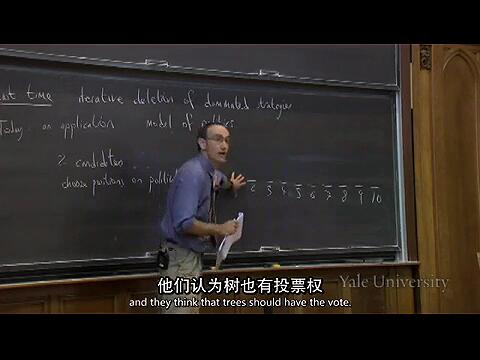 last time iterative deletion of dominated strategies
Today: an application model of politics
2 candidates
choose positions on politic
2 3 4 5 6 7 8 9 10
Yale University
他们认为树也有投票权
and they think that trees should have the vote.